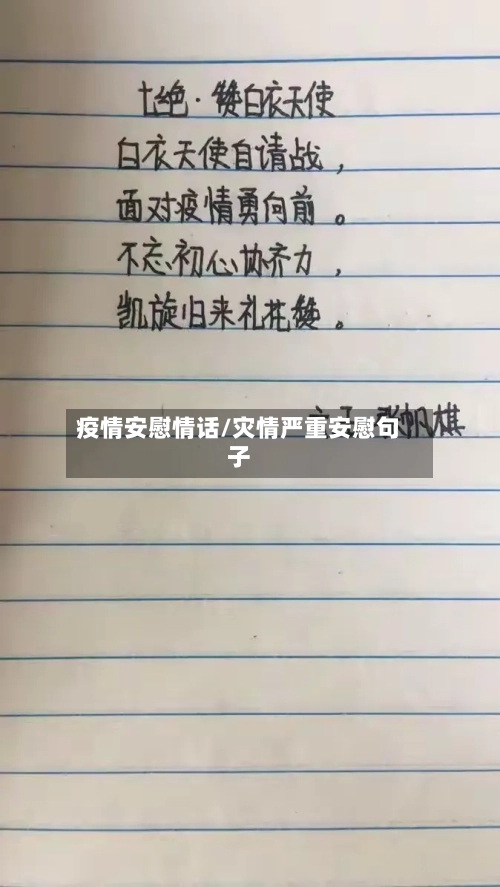 七绝·赞白衣天使
白衣天使自请战，
面对疫情勇向前。
不忘初心协齐力，
凯旋归来礼花赞。
帆棋
疫情安慰情话/灾情严重安慰句
子